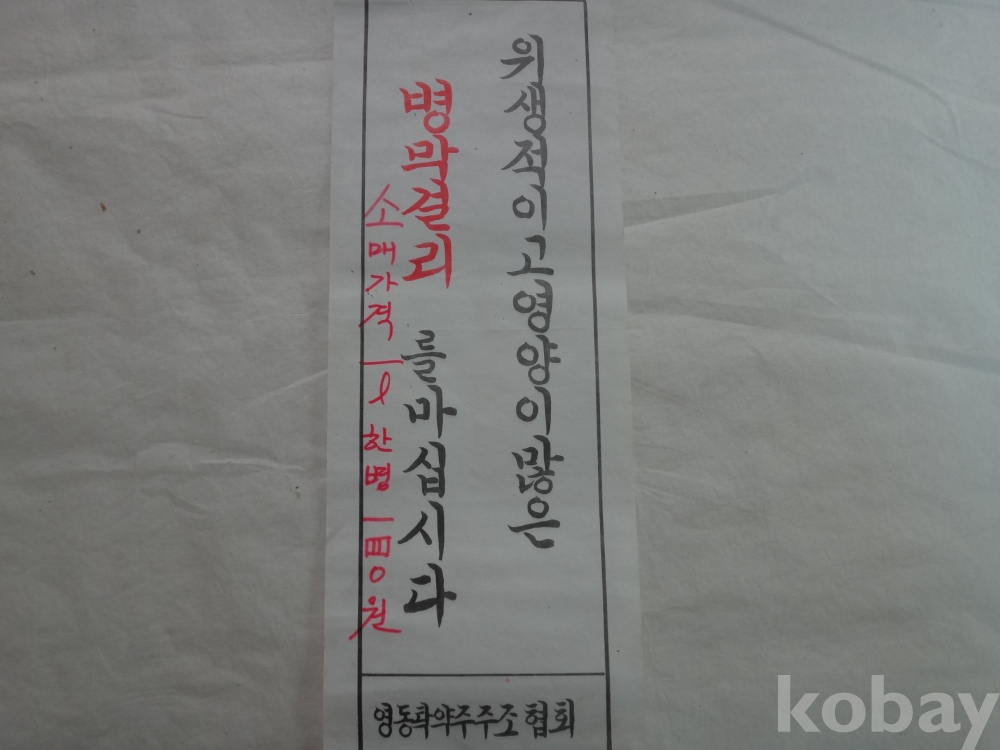 위생적이고영양이많은
병막걸리 를마십시다
소매가격 一ℓ 한병 一四0원
영동탁약주주조협회
kobay